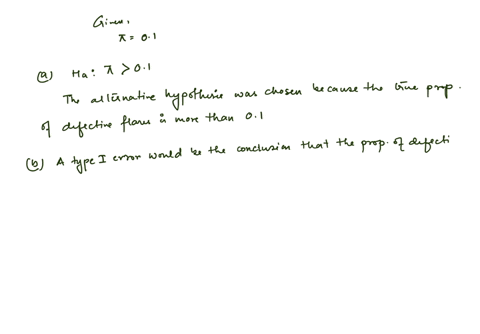 Given,
π = 0.1
(a) Ha: π > 0.1
The alternative hypothesis was chosen because the true prop.
of defective flares is more than 0.1
(b) A type I error would be the conclusion that the prop. of defecti